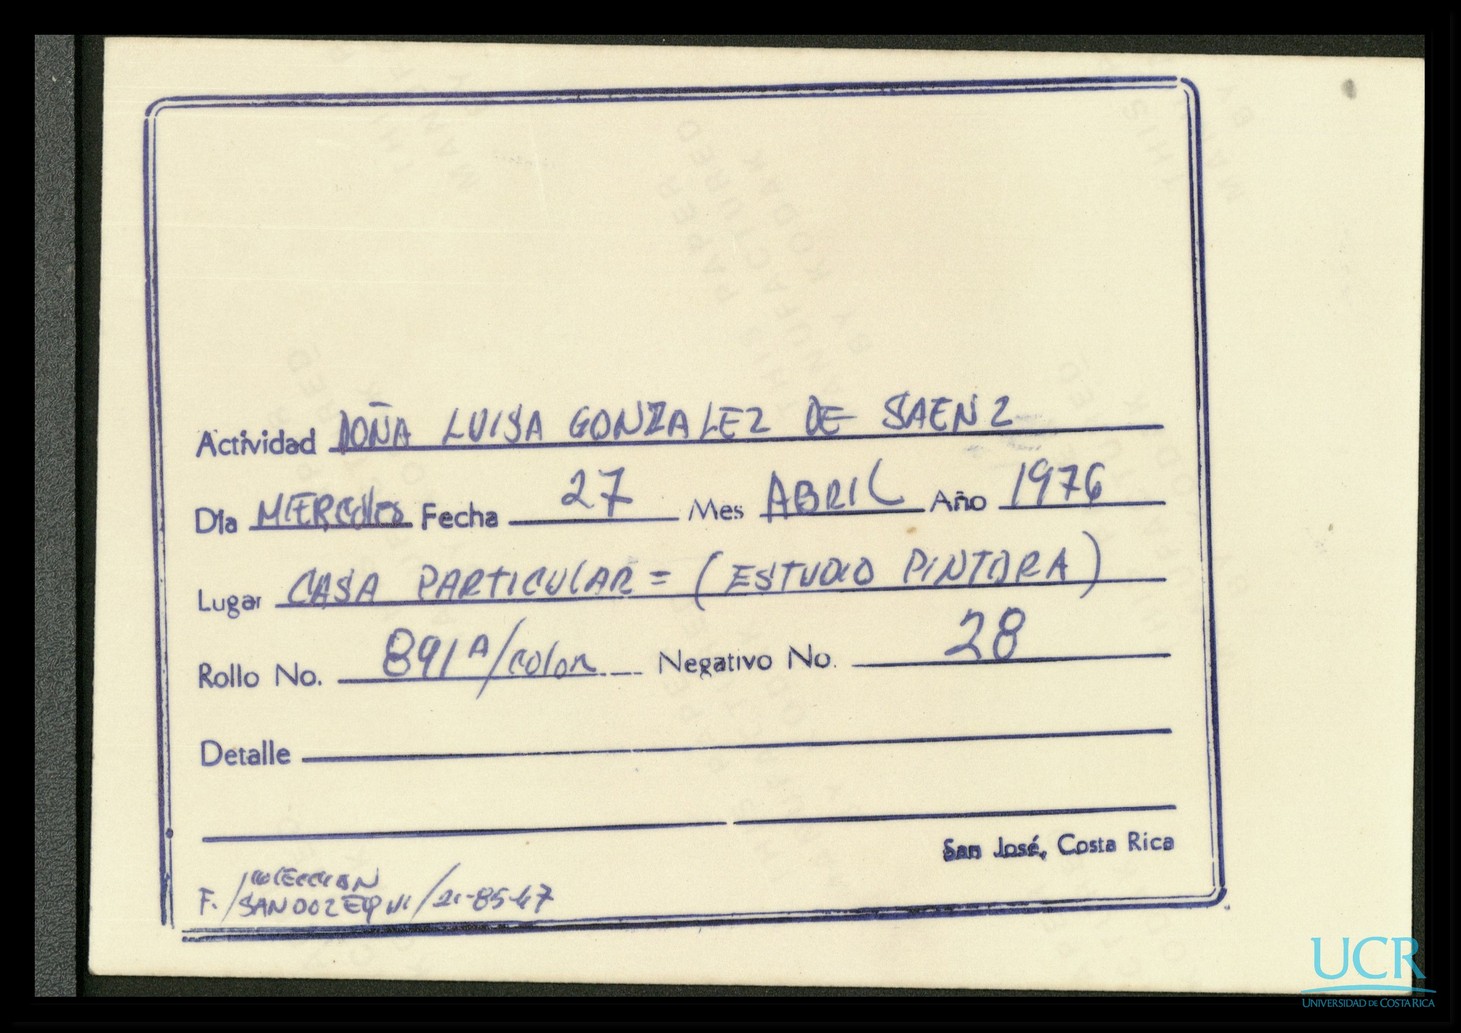 Actividad DOÑA LUISA GONZALEZ DE SAENZ
Día MIERCOLES Fecha 27 Mes ABRIL Año 1976
Lugar CASA PARTICULAR = (ESTUDIO PINTORA)
Rollo No. 891A/color Negativo No. 28
Detalle
San José, Costa Rica
F. / COLECCION
SANDOZ EQUI / 21-85-47
UCR
UNIVERSIDAD DE COSTA RICA
THIS PAPER
MANUFACTURED
BY KODAK